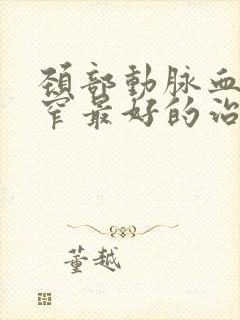 頚部動脉血
窄最好的治
董越